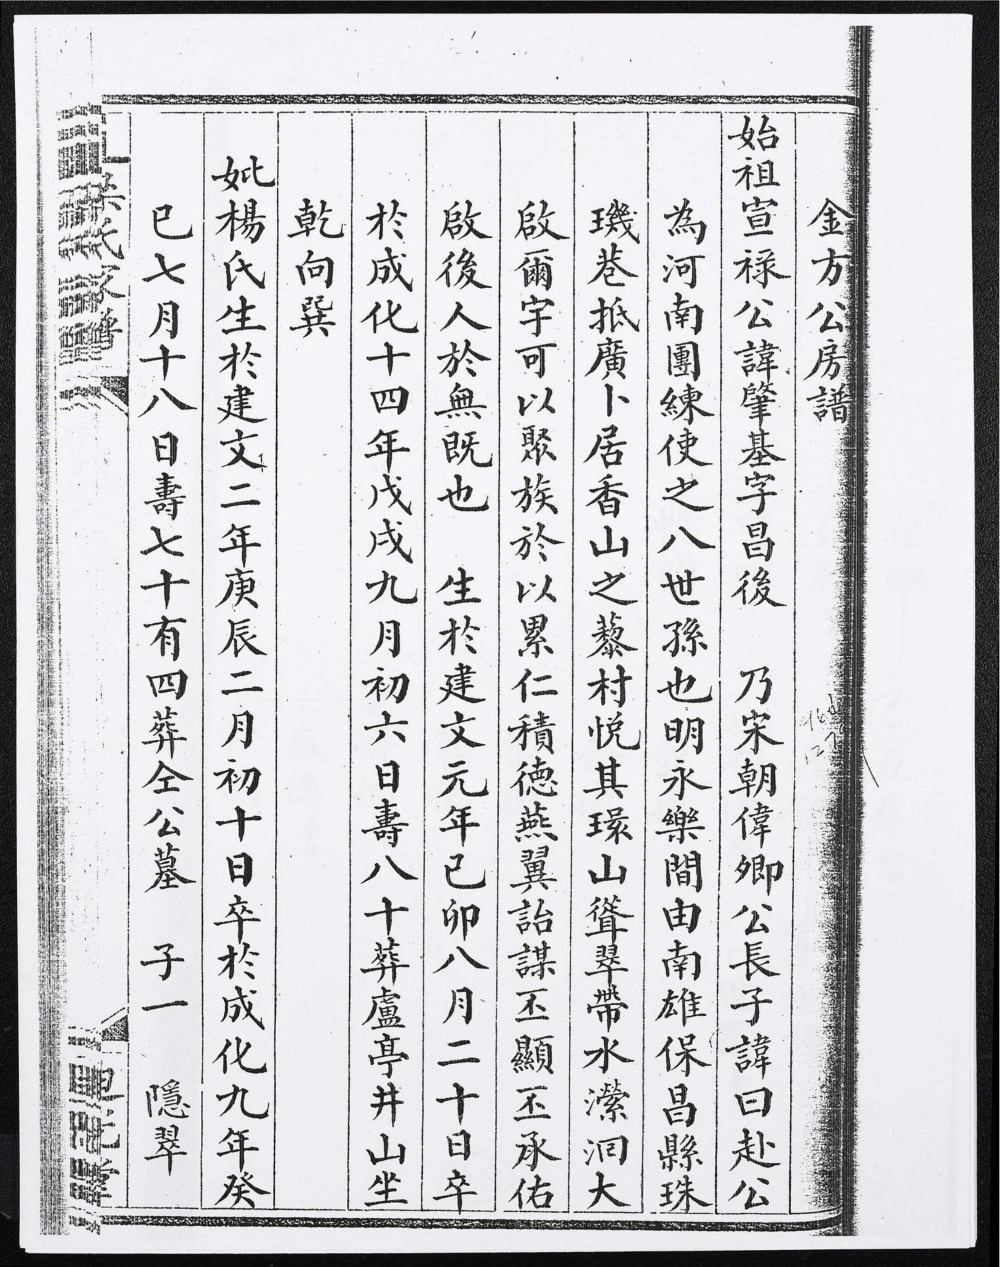 金方公房譜
始祖宣祿公諱肇基字昌後　乃宋朝偉卿公長子諱曰赴公
為河南團練使之八世孫也明永樂間由南雄保昌縣珠
璣巷抵廣卜居香山之藜村悅其環山聳翠帶水瀠洄大
啟爾宇可以聚族於以累仁積德燕翼詒謀丕顯丕承佑
啟後人於無既也　生於建文元年己卯八月二十日卒
於成化十四年戊戌九月初六日壽八十葬盧亭井山坐
乾向巽
妣楊氏生於建文二年庚辰二月初十日卒於成化九年癸
巳七月十八日壽七十有四葬仝公墓　子一　隱翠
梁氏家譜